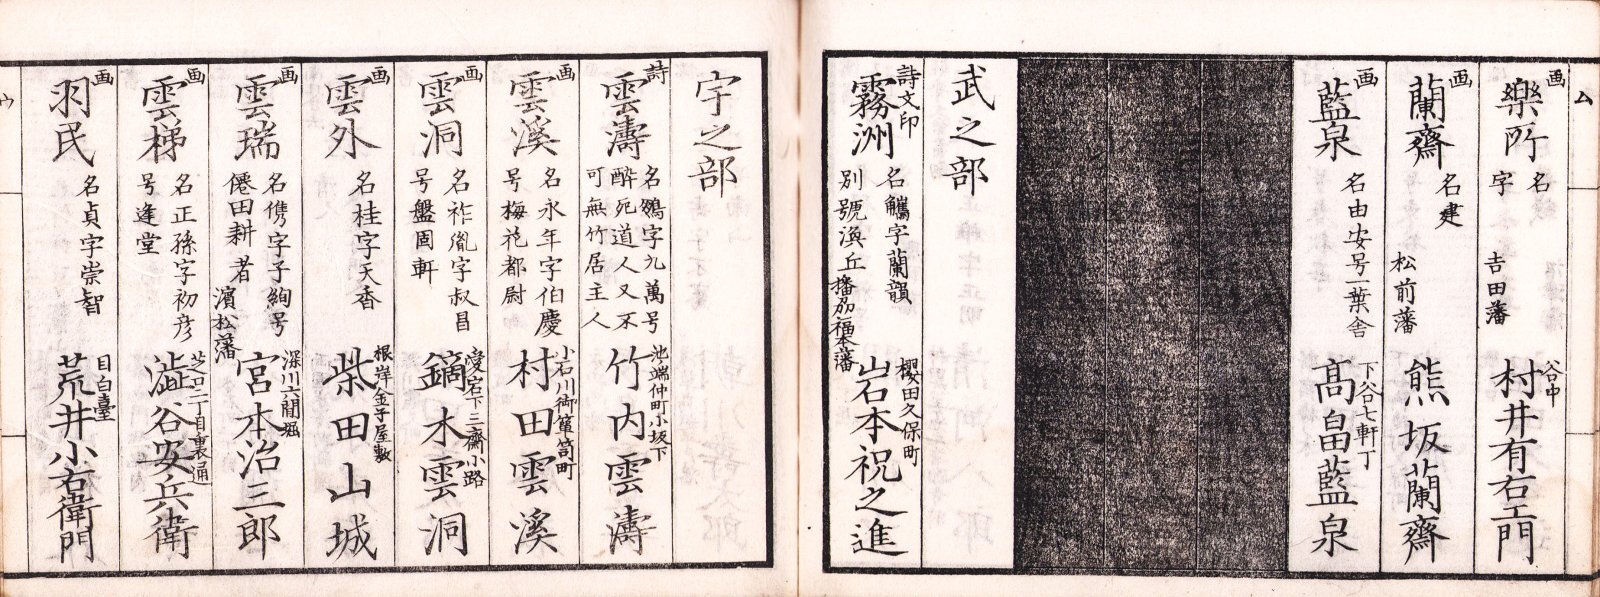 ム
画
樂所
名
字
吉田藩
谷中
村井有右エ門
画
蘭齋
名建
松前藩
熊坂蘭齋
画
藍泉
名由安号一葉舎
下谷七軒丁
髙畠藍泉
武之部
詩文印
霧洲
名觿字蘭韻
別號渙丘
播刕福本藩
櫻田久保町
岩本祝之進
宇之部
詩
雲濤
名鵕字九萬号
酔死道人又不
可無竹居主人
池端仲町小坂下
竹内雲濤
画
雲溪
名永年字伯慶
号梅花都尉
小石川御簞笥町
村田雲溪
画
雲洞
名祚胤字叔昌
号盤固軒
愛宕下三齋小路
鏑木雲洞
画
雲外
名桂字天香
根岸金子屋敷
柴田山城
画
雲瑞
名儁字子絢号
僊田耕者
濱松藩
深川六間堀
宮本治三郎
画
雲梯
名正孫字初彦
号逢堂
芝口二丁目裏通
澁谷安兵衛
画
羽民
名貞字崇智
目白臺
荒井小右衛門
ウ